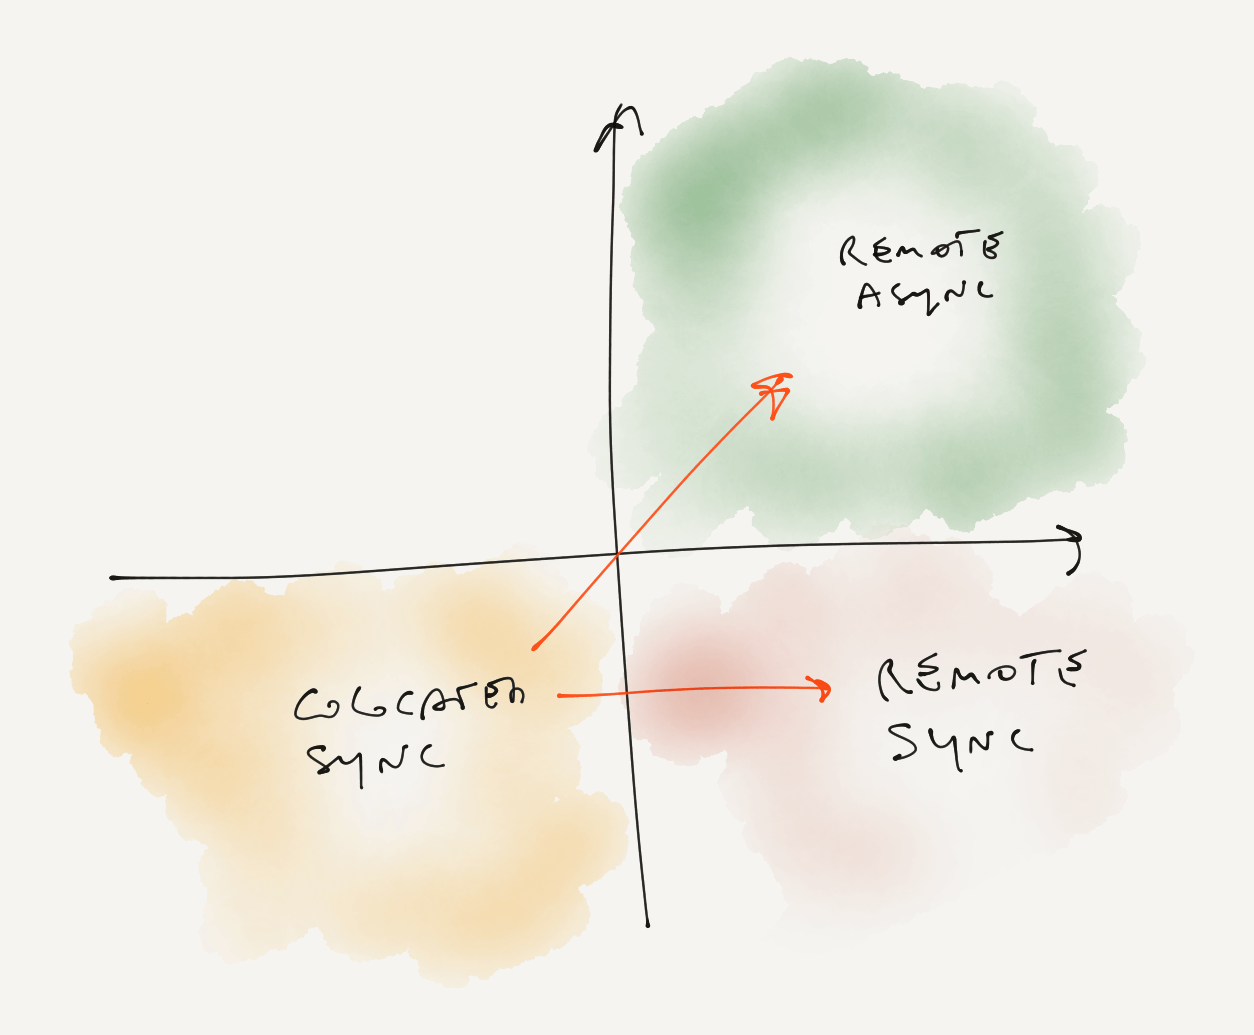 REMOTE
ASYNC
COLOCATED
SYNC
REMOTE
SYNC